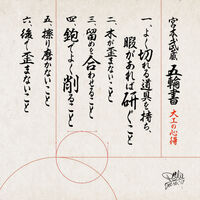 宮本武蔵 五輪書 大工の心得
一、よく切れる道具を持ち、
暇があれば研ぐこと
二、木が歪まないこと
三、留めを合わせること
四、鉋でよく削ること
五、擦り磨かないこと
六、後で歪まないこと